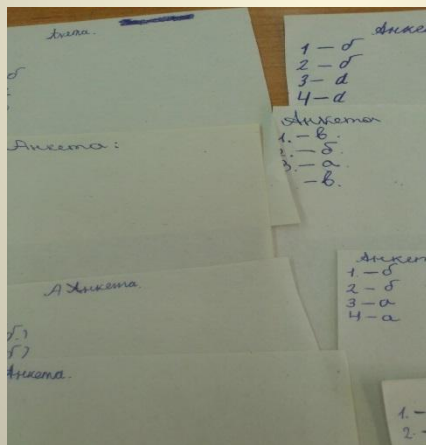 Анкета.
б
Анкета:
А Анкета.
б)
б)
Анкета.
Анке
1 – б
2 – б
3 – а
4 – а
Анкета
1. – в.
2. – б.
3. – а.
– в.
Анкет
1 – б
2 – б
3 – а
4 – а
1. –
2. –